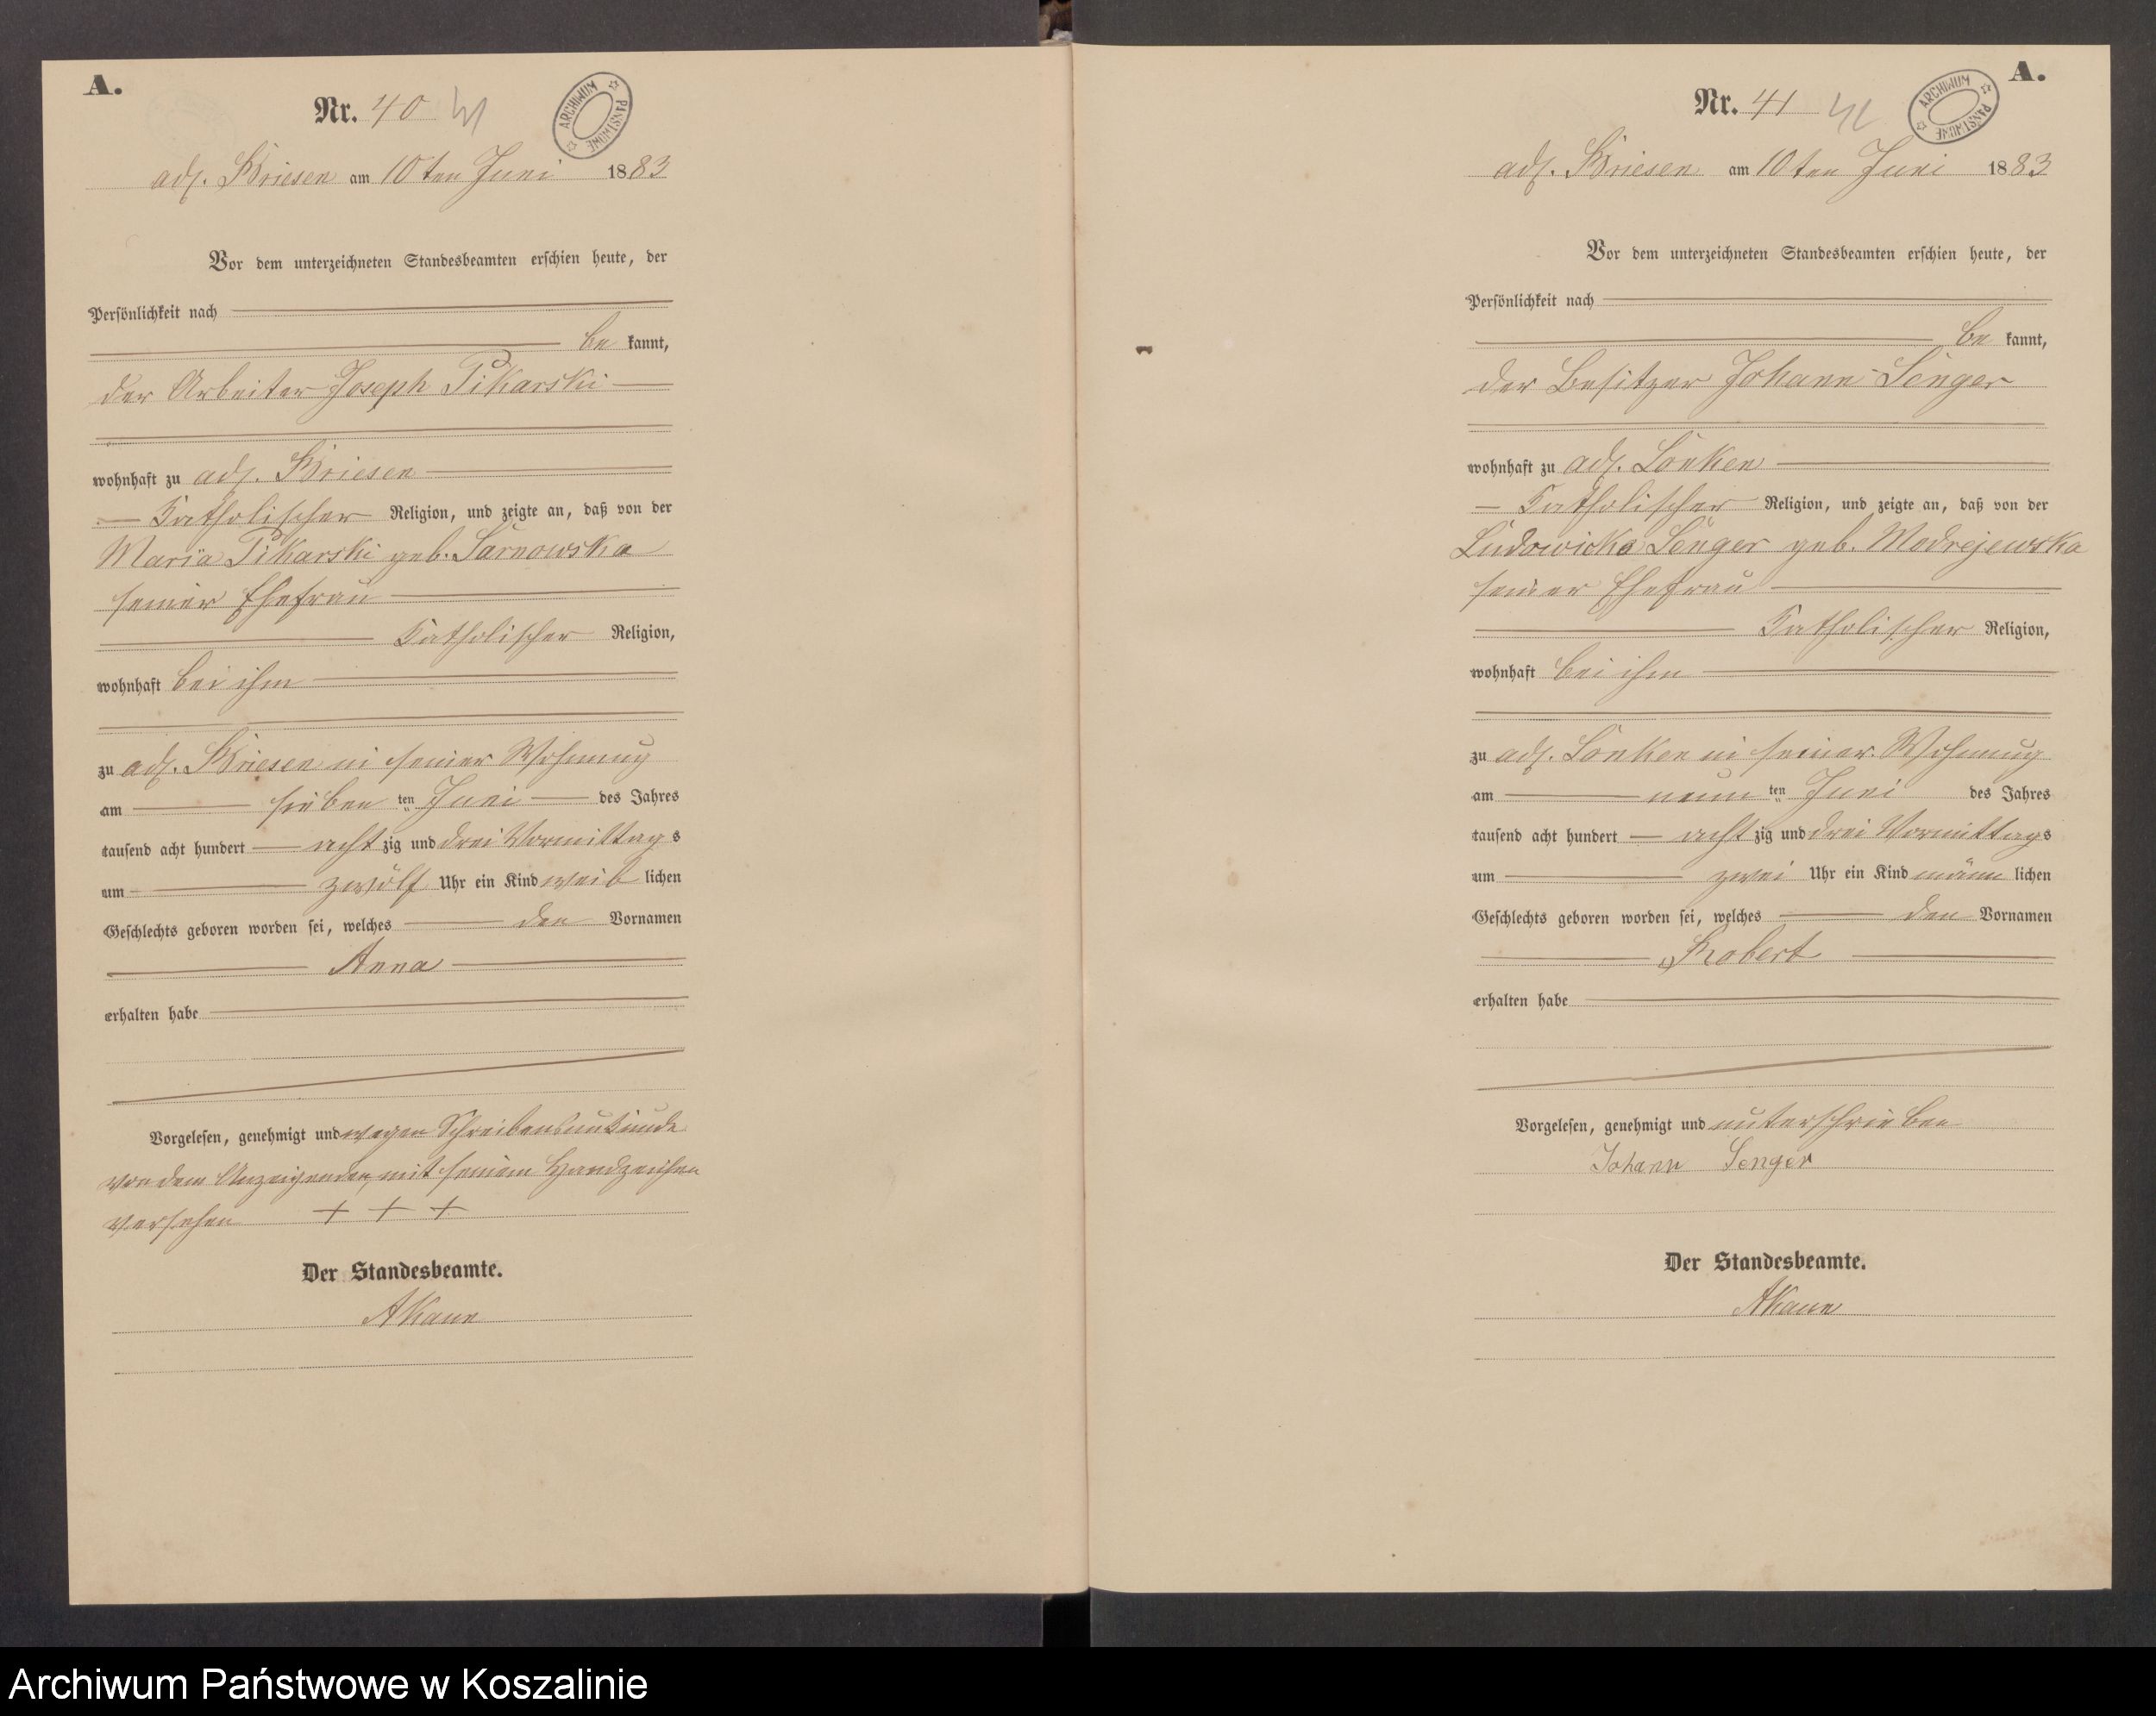 A.
Nr. 40 41
ARCHIWUM PAŃSTWOWE
adl. Briesen am 10ten Juni 1883
Vor dem unterzeichneten Standesbeamten erschien heute, der
Persönlichkeit nach
be kannt,
der Arbeiter Joseph Pikarski
wohnhaft zu adl. Briesen
Katholischer Religion, und zeigte an, daß von der
Maria Pikarski geb. Sarnowska
seiner Ehefrau
Katholischer Religion,
wohnhaft bei ihm
zu adl. Briesen in seiner Wohnung
am sieben ten Juni des Jahres
tausend acht hundert acht zig und drei Vormittag s
um zwölf Uhr ein Kind weib lichen
Geschlechts geboren worden sei, welches den Vornamen
Anna
erhalten habe
Vorgelesen, genehmigt und wegen Schreibensunkunde
von dem Anzeigenden mit seinem Handzeichen
versehen + + +
Der Standesbeamte.
AKaun
A.
Nr. 41 42
ARCHIWUM PAŃSTWOWE
adl. Briesen am 10ten Juni 1883
Vor dem unterzeichneten Standesbeamten erschien heute, der
Persönlichkeit nach
be kannt,
der Besitzer Johann Senger
wohnhaft zu adl. Lonken
Katholischer Religion, und zeigte an, daß von der
Ludowicka Senger geb. Modrejewska
seiner Ehefrau
Katholischer Religion,
wohnhaft bei ihm
zu adl. Lonken in seiner Wohnung
am neun ten Juni des Jahres
tausend acht hundert acht zig und drei Vormittags
um zwei Uhr ein Kind männ lichen
Geschlechts geboren worden sei, welches den Vornamen
Robert
erhalten habe
Vorgelesen, genehmigt und unterschrieben
Johann Senger
Der Standesbeamte.
AKaun
Archiwum Państwowe w Koszalinie